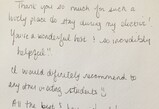 Thank you so much for such a
lovely place to stay during my elective!
You're a wonderful host & so incredibly
helpful!
I would definitely recommend to
any other visiting students!
All the best &